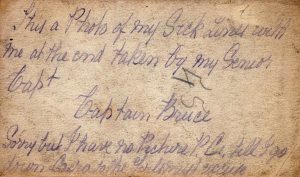 This a Photo of my Sick Lines with
me at the end taken by my Senior
Capt
Captain Bruce
Sorry but I have no Picture P.C. till I go
down